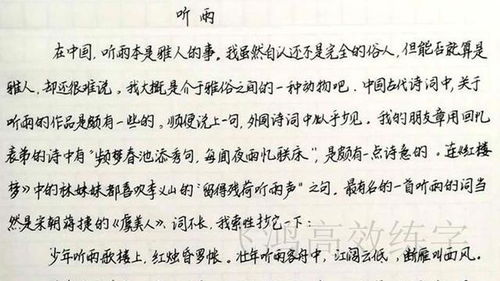 听雨
在中国,听雨本是雅人的事。我虽然自认还不是完全的俗人,但能否就算是
雅人,却还很难说。我大概是介于雅俗之间的一种动物吧。中国古代诗词中,关于
听雨的作品是颇有一些的。顺便说上一句,外国诗词中似乎少见。我的朋友章用回忆
表弟的诗中有“频梦春池添秀句,每闻夜雨忆联床”,是颇有一点诗意的。连《红楼
梦》中的林妹妹都喜欢李义山的“留得残荷听雨声”之句。最有名的一首听雨的词当
然是宋朝蒋捷的《虞美人》,词不长,我索性抄它一下:
少年听雨歌楼上,红烛昏罗帐。壮年听雨客舟中,江阔云低,断雁叫西风。
飞鸿高效练字